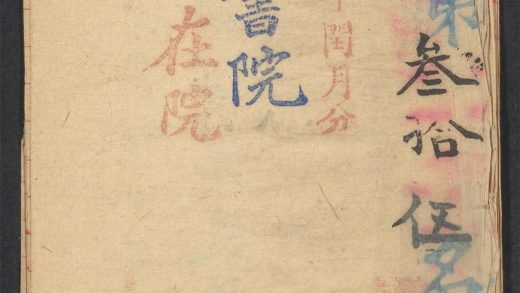 叁拾伍名
閏月分
書院
在院